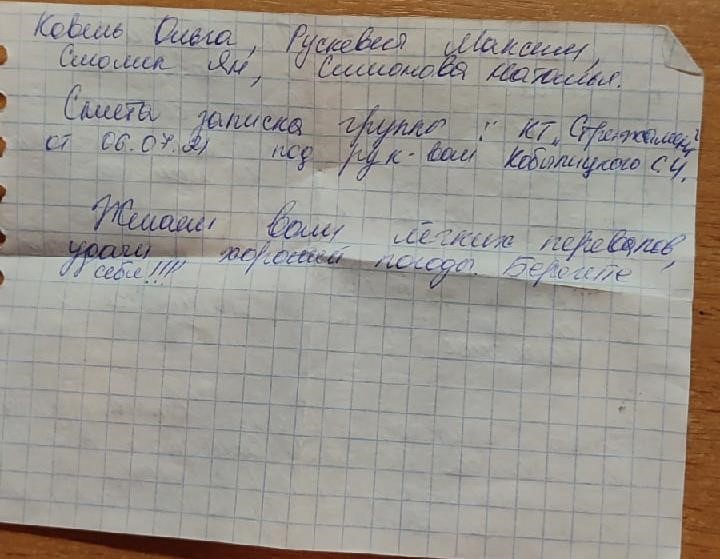 Ковель Ольга, Рускевич Максим,
Смолик Ян, Симонова Наталья.
Снята записка группы: КТ „Стрижамент"
от 06.07.21 под рук-вом Кобылицкого С.И.
Желаем вам лёгких перевалов,
удачи хорошей погоды. Берегите
себя!!!!